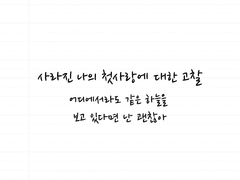 사라진 나의 첫사랑에 대한 고찰
어디에서라도 같은 하늘을
보고 있다면 난 괜찮아